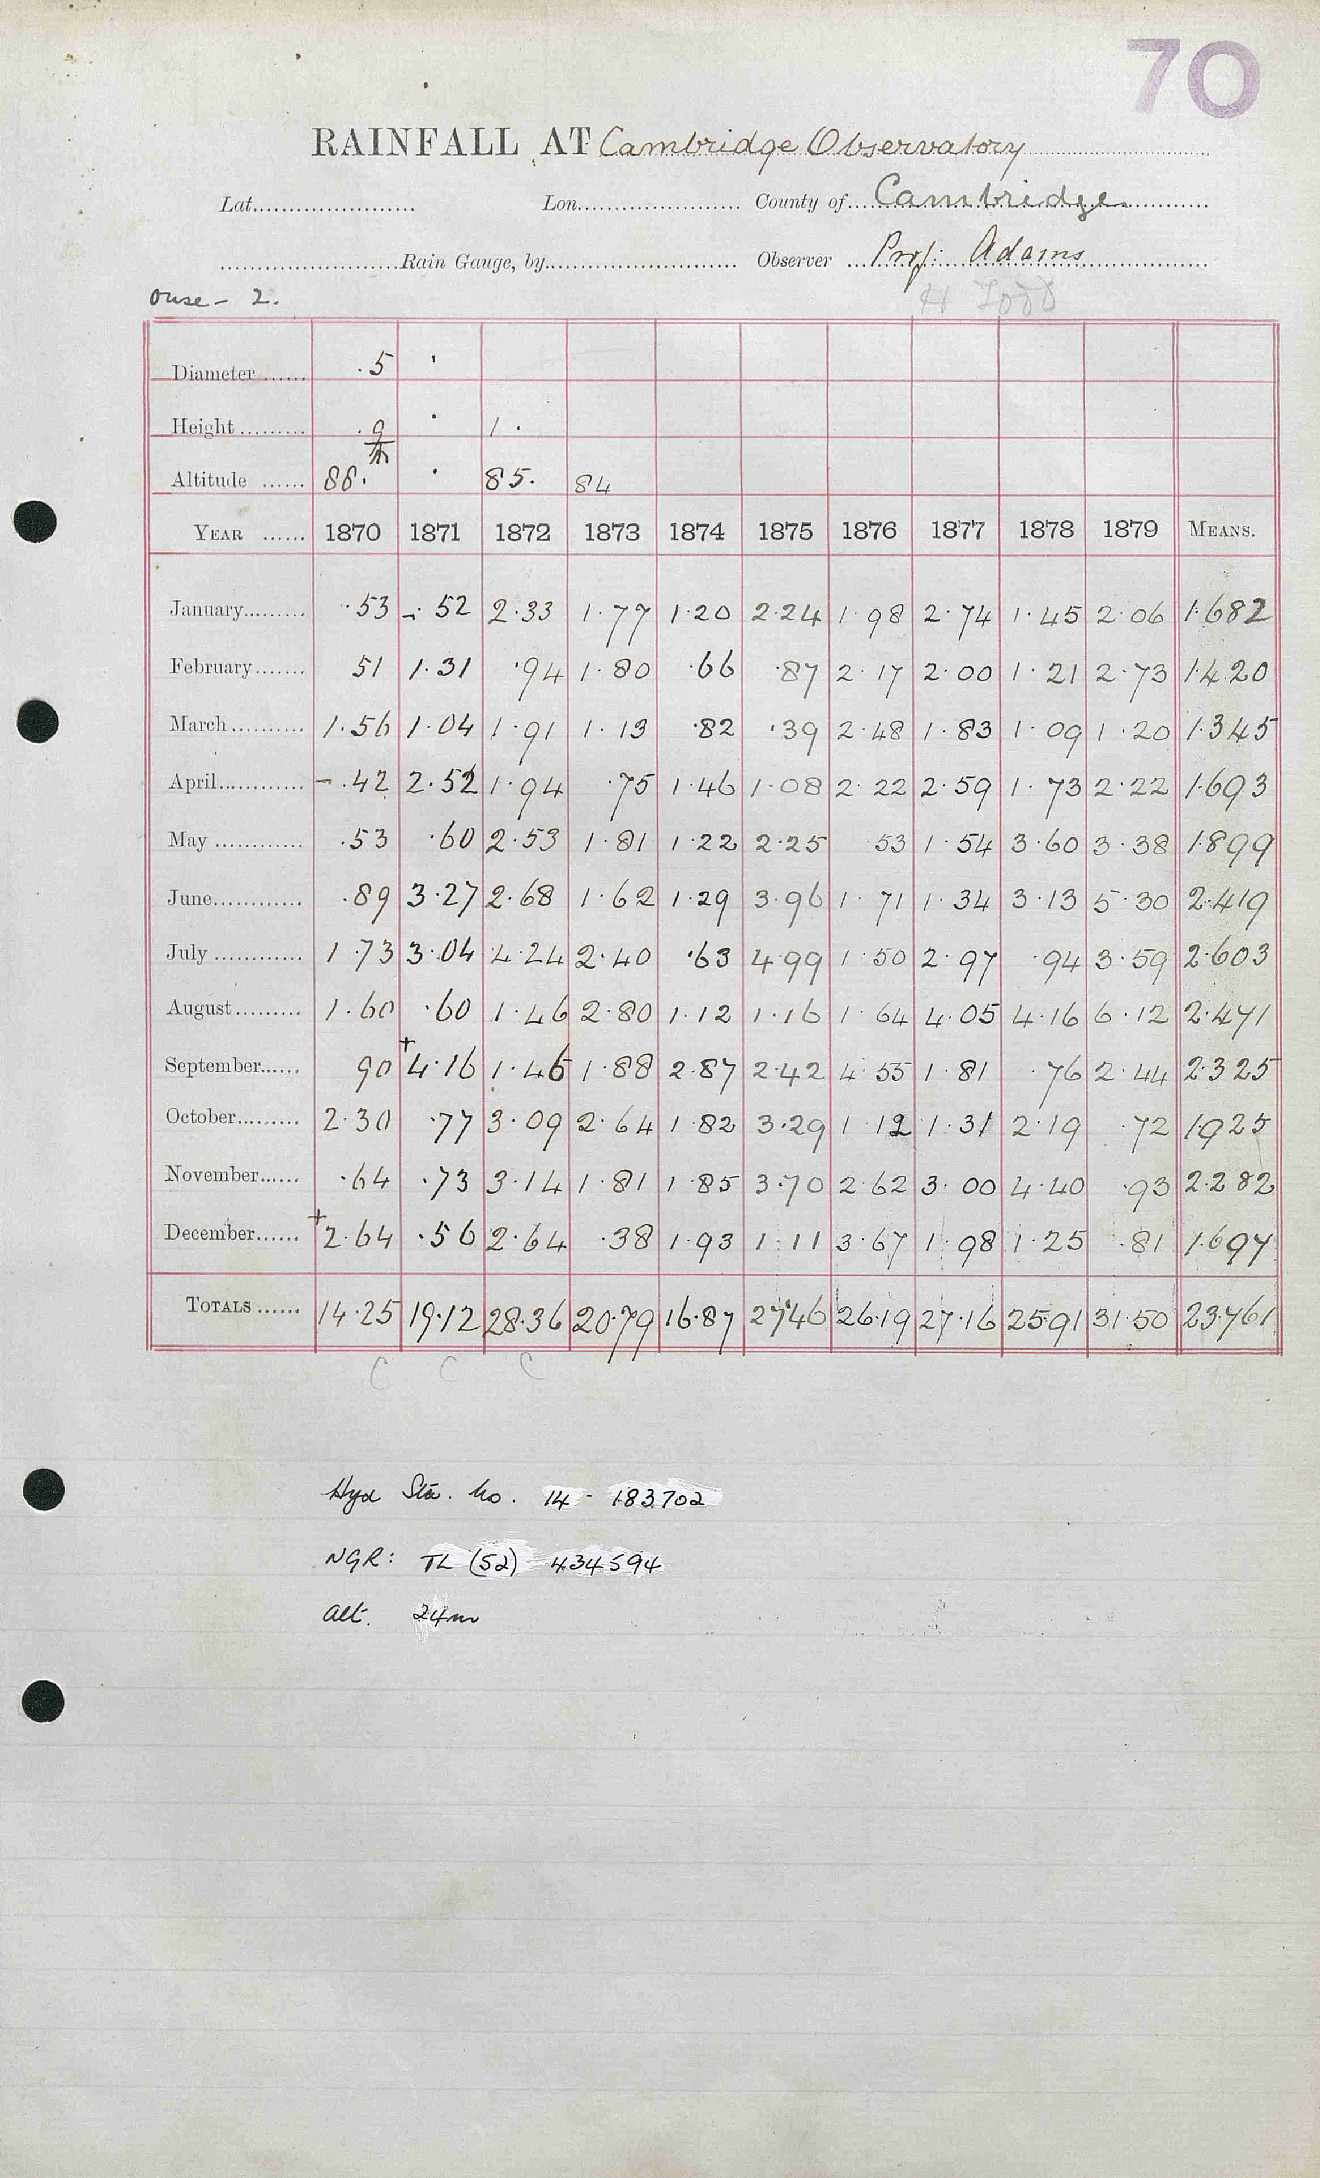 70
RAINFALL AT Cambridge Observatory
Lat. Lon. County of Cambridge
Rain Gauge, by Observer Prof: Adams
Ouse - 2. H Todd
Diameter ...... .5 '
Height ...... .9 . 1 .
Altitude ...... 88. . 85. 84
YEAR ...... 1870 1871 1872 1873 1874 1875 1876 1877 1878 1879 MEANS.
January ...... ·53 -·52 2·33 1·77 1·20 2·24 1·98 2·74 1·45 2·06 1·682
February ...... 51 1·31 ·94 1·80 ·66 ·87 2·17 2·00 1·21 2·73 1·420
March ...... 1·56 1·04 1·91 1·13 ·82 ·39 2·48 1·83 1·09 1·20 1·345
April ...... -·42 2·52 1·94 ·75 1·46 1·08 2·22 2·59 1·73 2·22 1·693
May ...... ·53 ·60 2·53 1·81 1·22 2·25 53 1·54 3·60 3·38 1·899
June ...... ·89 3·27 2·68 1·62 1·29 3·96 1·71 1·34 3·13 5·30 2·419
July ...... 1·73 3·04 4·24 2·40 ·63 4·99 1·50 2·97 ·94 3·59 2·603
August ...... 1·60 ·60 1·46 2·80 1·12 1·16 1·64 4·05 4·16 6·12 2·471
September ...... 90 +4·16 1·46 1·88 2·87 2·42 4·55 1·81 ·76 2·44 2·325
October ...... 2·30 ·77 3·09 2·64 1·82 3·29 1·12 1·31 2·19 ·72 1·925
November ...... ·64 ·73 3·14 1·81 1·85 3·70 2·62 3·00 4·40 ·93 2·282
December ...... +2·64 ·56 2·64 ·38 1·93 1·11 3·67 1·98 1·25 ·81 1·697
TOTALS ...... 14·25 19·12 28·36 20·79 16·87 27·46 26·19 27·16 25·91 31·50 23·761
C C C
Hyd Sta. No. 14 - 183702
NGR: TL (52) 434594
Alt. 24m